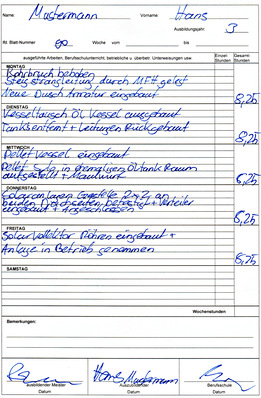 Name Mustermann Vorname Hans
Ausbildungsjahr: 3
Rt. Blatt-Nummer 90 Woche vom bis
ausgeführte Arbeiten, Berufsschulunterricht, betriebliche u. überbetr. Unterweisungen usw. Einzel-Stunden Gesamt-Stunden
MONTAG
Rohrbruch behoben
Steigstrangleitung durch MFH gelegt
Neue Dusch Armatur eingebaut 8,25
DIENSTAG
Kesseltausch Öl Kessel ausgebaut
Tanks entfernt + Leitungen Rückgebaut 8,25
MITTWOCH
Pellet Kessel eingebaut
Pellet Silo in ehemaligen Öltank Raum
aufgestellt + Maulwurf 6,25
DONNERSTAG
Solaranlagen Gestelle 2x2 an
beiden Dachseiten befestigt + Verteiler
eingebaut + Angeschlossen 6,25
FREITAG
Solar Kollektor Röhren eingebaut +
Anlage in Betrieb genommen 8,25
SAMSTAG
Wochenstunden
Bemerkungen:
Hans Mustermann
ausbildender Meister Auszubildender Berufsschule
Datum Datum Datum